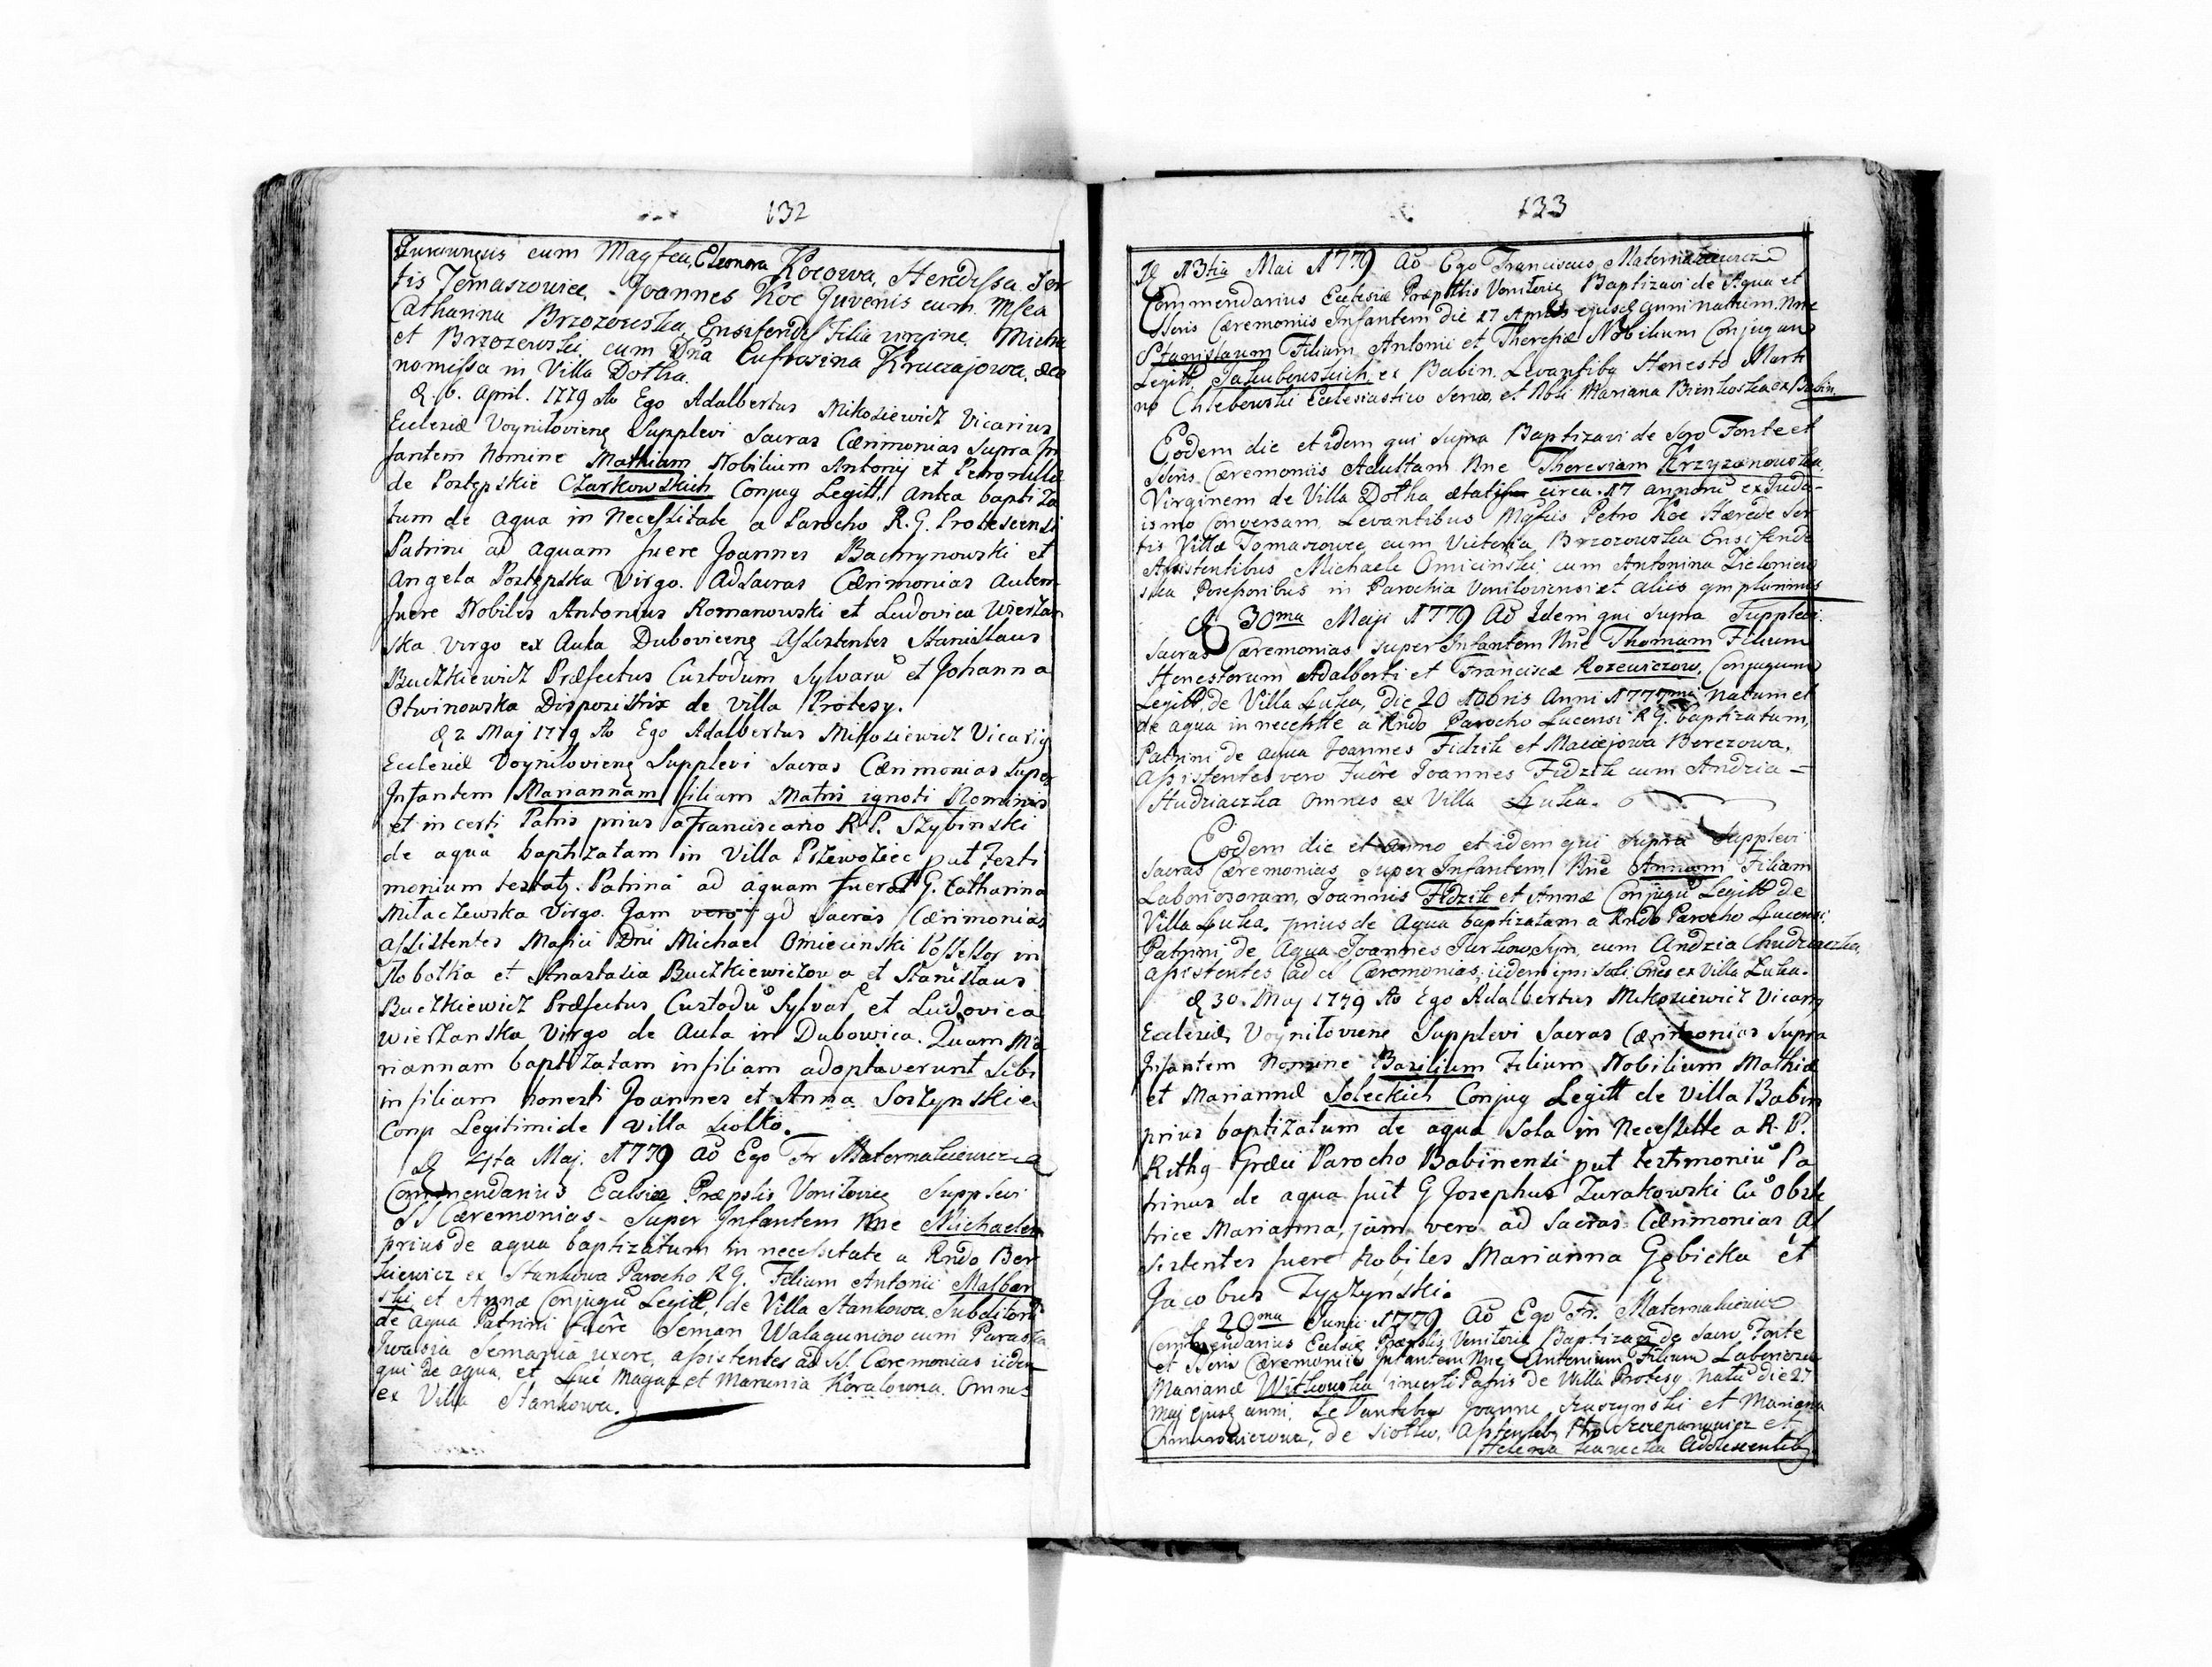 132
cum Magfca Eleonora Kocowa, Heredissa Sor
tis Tomaszowiec, Joannes Koc Juvenis cum Msca
Catharina Brzozowska Ensiferidis Filia virgine. Micha
et Brzozowski cum Dna Eufrosina Kruczajowa,
nomissa in Villa Dotha.
D. 6. April. 1779 Ao Ego Adalbertus Mikosiewicz Vicarius
Ecclesiæ Voyniloviens Supplevi Sacras Cærimonias Supra In
fantem Nomine Mathiam Nobilium Antony et Petronillæ
de Postępskie Czarkowskich Conjug Legitt, antea baptiza
tum de aqua in Necessitate a Parocho R. G. Protesiensi
Patrini ad aquam fuere Joannes Bachynowski et
Angela Postępska Virgo. Ad Sacras Cærimonias autem
fuere Nobiles Antonius Romanowski et Ludovica Wierzan
ska Virgo ex Aula Duboviceng Assistentes Stanislaus
Buczkiewicz Præfectus Custodum Sylvaru et Johanna
Otwinowska Dispositrix de villa Protesy.
D 2 Maj 1779 Ao Ego Adalbertus Mikosiewicz Vicarig
Ecclesiæ Voyniloviens Supplevi Sacras Cærimonias super
Infantem Mariannam filiam Matris ignoti Nominis
et incerti Patris prius a Franciscano R. P. Szybinski
de aqua baptizatam in Villa Przewoziec put Testi
monium testatg. Patrina ad aquam fuerat G. Catharina
Milaczewska Virgo. Jam vero ad Sacras Cærimonias
Assistentes Mafici Dni Michael Omiecinski Possessor in
Slobotka et Anastasia Buczkiewiczowa et Stanislaus
Buczkiewicz Præfectus Custodu Sylvar et Ludovica
Wierzanska Virgo de Aula in Dubowica. Quam Ma
riannam baptizatam in filiam adoptaverunt sibi
in filiam honesti Joannes et Anna Sostynskie
Conp Legitimi de villa Siolko.
D 4ta Maj. 1779 Ao Ego Fr Maternakiewicz
Commendarius Eccl. Præpslis Vonilovieg Supplevi
SS Cæremonias Super Infantem Nne Michaelem
prius de aqua baptizatum in necessitate a Rndo Ber
kiewicz ex Stankowa Parocho R G. Filium Antonii Malbor
ski et Annæ Conjugu Legitt, de Villa Stankowa. Subditoru
de aqua Patrini fuere Seman Walaguniow cum Paraska
Iwasia Semagia uxore, assistentes ad SS. Cæremonias iidem
qui de aqua, et Magaz et Marunia Koralowna. Omnes
ex Villa Stankowa.
133
D 13tia Mai 1779 Ao Ego Franciscus Maternakiewicz
Commendarius Ecclesiæ Præpttis Voniloviens Baptizavi de Aqua et
Sbris Cæremoniis Infantem die 27 Aprilis ejusq anni natum. Nne
Stanislaum Filium Antonii et Theresiæ Nobilium Conjugum
Legitt. Jakubowskich, ex Babin. Levantibg Honesto Marti
no Chlebowski Ecclesiastico Servo, et Nbli Mariana Bienkoska ex Babin.
Eodem die et idem qui supra Baptizavi de Scro Fonte et
Sbris Cæremoniis Adultam Nne Theresiam Krzyzanowska,
Virginem de Villa Dotha ætatis circa 17 annoru ex Juda-
ismo Conversam, Levantibus Mgfcis Petro Koc Hærede Sor
tis Villæ Tomaszowce cum Victoria Brzozowska Ensifende
Assistentibus Michaele Omicinski, cum Antonina Zieloniew
ska Possessoribus in Parochia Voniloviensi et aliis qm plurimis
D 30ma Maji 1779 Ao Idem qui supra Supplevi.
Sacras Cæremonias super Infantem Nne Thomam Filium
Honestorum Adalberti et Franciscæ Rozewiczow, Conjugum
Legitt, de Villa Luka, die 20 Xbbris Anni 1777mi natum et
de aqua in necessitte a Rndo Parocho Lucensi R G. baptizatum,
Patrini de aqua Joannes Fidzik et Maciejowa Berezowa,
assistentes vero Fuere Joannes Fidzik cum Andzia =
Hudziaczka omnes ex Villa Luka.
Eodem die et anno et idem qui supra Supplevi
Sacras Cæremonias super Infantem Nne Annam Filiam
Laboriosoram, Joannis Fidzik et Annæ Conjugu Legitt de
Villa Luka, prius de Aqua baptizatam a Rndo Parocho Lucensi,
Patrini de Aqua Joannes Jurkow Syn, cum Andzia Chudziaczka,
assistentes ad SS Cæremonias, iidem ipsi soli. Oes ex Villa Luka.
D 30. Maj 1779 Ao Ego Adalbertus Mikosiewicz Vicariq
Ecclesiæ Voynilovieng Supplevi Sacras Cærimonias supra
Infantem Nomine Basilium Filium Nobilium Mathiæ
et Mariannæ Soleckich Conjug Legitt de Villa Babin
prius baptizatum de aqua sola in Necessitte a R. P.
Rithg Græci Parocho Babinensi put testimoniu Pa
trinus de aqua fuit G Josephus Zurakowski Cu Obste
trice Marianna, jam vero ad Sacras Cærimonias As
sistentes fuere Nobiles Marianna Gębicka et
Jacobus Tyszyński.
D 20ma Junii 1779 Ao Ego Fr. Maternakiewicz
Commendarius Eccl. Præpslis Vonilovie Baptizavi de Sacro Fonte
et Sbris Cæremoniis Infantem Nne Antonium Filium Laboriosæ
Marianæ Witkowska incerti Patris de Villa Protesy. Natu die 27
Maj ejusq anni. Levantibus Joanne Kuszynski et Mariana
de Siolko, Szczepanowicz et
Helena Adolescentibg